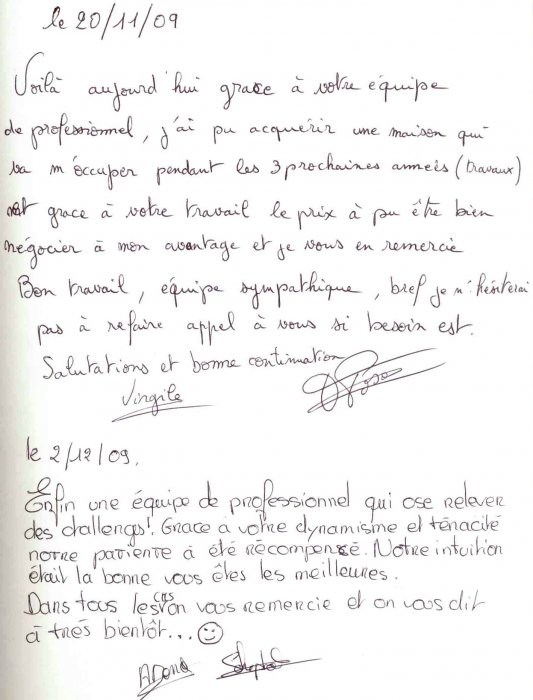 le 20/11/09
Voilà aujourd'hui grace à votre équipe
de professionnel, j'ai pu acquérir une maison qui
va m'occuper pendant les 3 prochaines années (travaux)
et grace à votre travail le prix à pu être bien
négocier à mon avantage et je vous en remercie
Bon travail, équipe sympathique, bref je n'hésiterai
pas à refaire appel à vous si besoin est.
Salutations et bonne continuation
Virgile
le 2/12/09.
Enfin une équipe de professionnel qui ose relever
des challengs! Grace a votre dynamisme et ténacité
notre patiente à été récompensé. Notre intuition
était la bonne vous êtes les meilleures.
Dans tous les cas on vous remercie et on vous dit
à trés bientôt... ☺